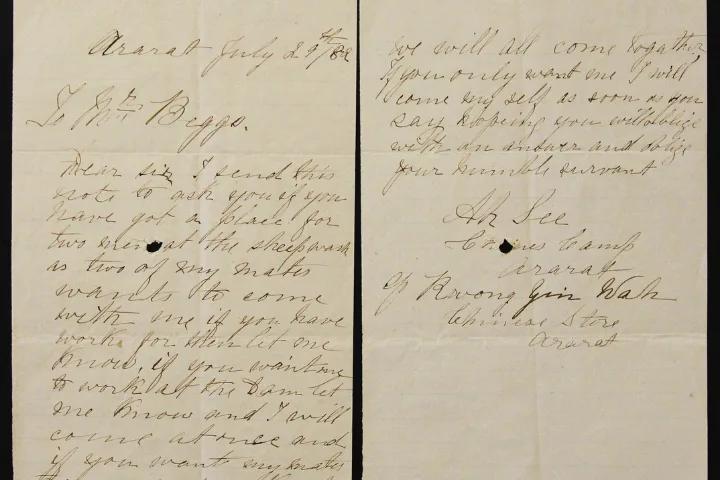 Ararat July 29th/82
To Mr Beggs.
Dear sir I send this
note to ask you if you
have got a place for
two men at the sheepwash
as two of my mates
wants to come
with me if you have
work for them let me
know, if you want me
to work at the Dam let
me know and I will
come at once and
if you want my mates
we will all come together
If you only want me I will
come my self as soon as you
say hoping you will oblige
with an answer and oblige
your humble servant
Ah See
Camp
Ararat
Kwong Yin Wah
Chinese Store
Ararat